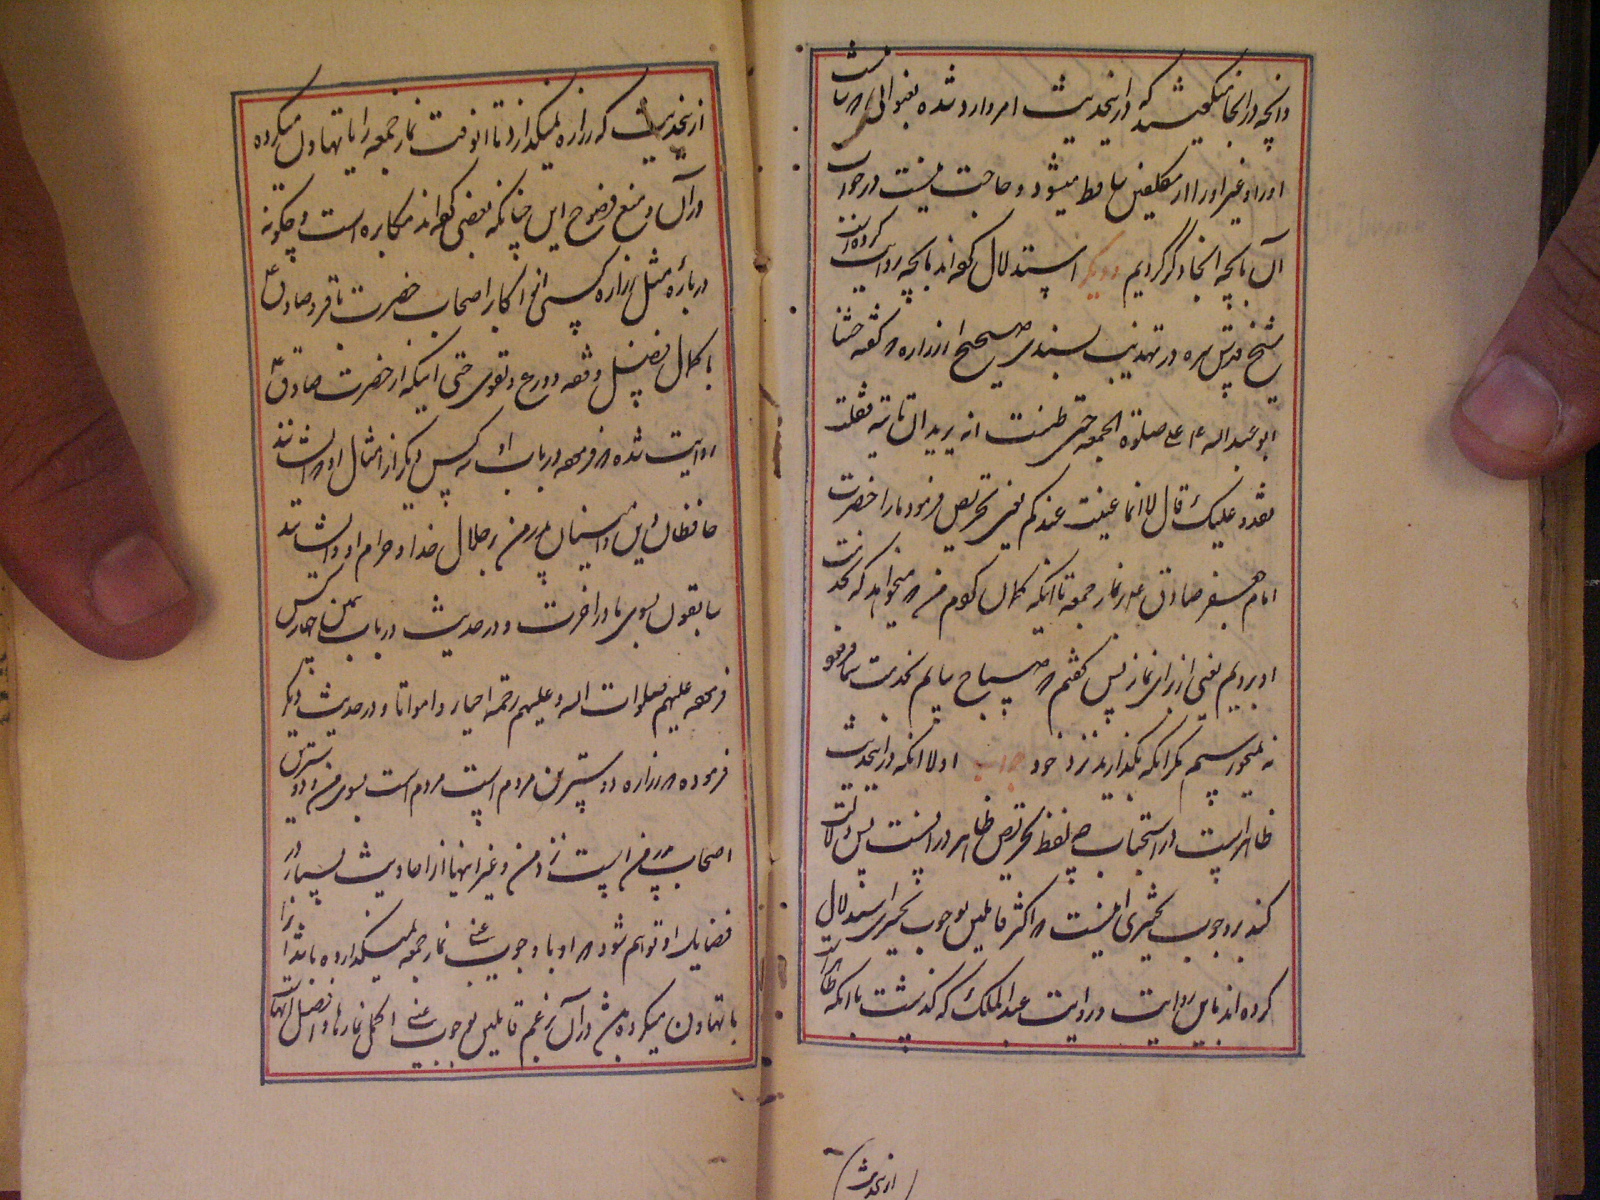 وانچه در اینجا میگویند که در اینحدیث امر وارد شده بعنوانی
او را و غیر او را از مکلفین ساقط میشود و حاجت نیست در جواب
آن بانچه انجا ذکر کردیم و دیگر استدلال کرده‌اند بانچه روایت کرده است
شیخ قدس سره در تهذیب بسندی صحیح از زراره که گفته حثنا
ابو عبد الله ع علی صلوة الجمعه حتی ظننت انه یرید ان ناتیه فقلت
نغدو علیک قال لا انما عنیت عندکم یعنی تحریص فرمود ما را حضرت
امام جعفر صادق ع در نماز جمعه تا آنکه گمان کردم من که میخواهد که بخدمت
او برویم یعنی از برای نماز پس گفتم که صباح بیایم بخدمت شما فرمود
نه نمیخواهم مگر آنکه بگذارید نزد خود جواب اولا آنکه در اینحدیث
ظاهر است در استحباب چه لفظ تحریص ظاهر در آنست پس دلالت
کند بر وجوب تخییری نیست که اکثر قایلین بوجوب تخییری استدلال
کرده‌اند باین روایت و روایت عبد الملک که گذشت با آنکه ظاهر است
از نحدیث
از نحدیث که زراره نمیگذارد تا انوقت نماز جمعه را یا تهاون میکرده
در آن و منع وضوح این چنانکه بعضی کرده‌اند مکابره است و چگونه
درباره مثل زراره کسی از اکابر اصحاب حضرت باقر و صادق ع
با کمال فضل و فقه و ورع و تقوی حتی اینکه از حضرت صادق ع
روایت شده که فرموده در باب او و سه کس دیگر از امثال او که ایشانند
حافظان دین و امینان پدر من بر حلال خدا و حرام او و ایشانند
سابقون بسوی ما در اخرت و در حدیث در باب همین چهار کس
فرموده علیهم صلوات الله و علیهم رحمته احیاء و امواتا و در حدیث دیگر
فرموده که زراره دوسترین مردم است بسوی من و دوسترین
اصحاب پدر من است نزد من و غیر اینها از احادیث بسیار در
فضایل او توهم شود که او با وجوب عینی نماز جمعه نمیگذارده باشد آنرا
یا تهاون میکرده باشد در آن بزعم قایلین بوجوب عینی اکمل نمازها و افضل آنهاست